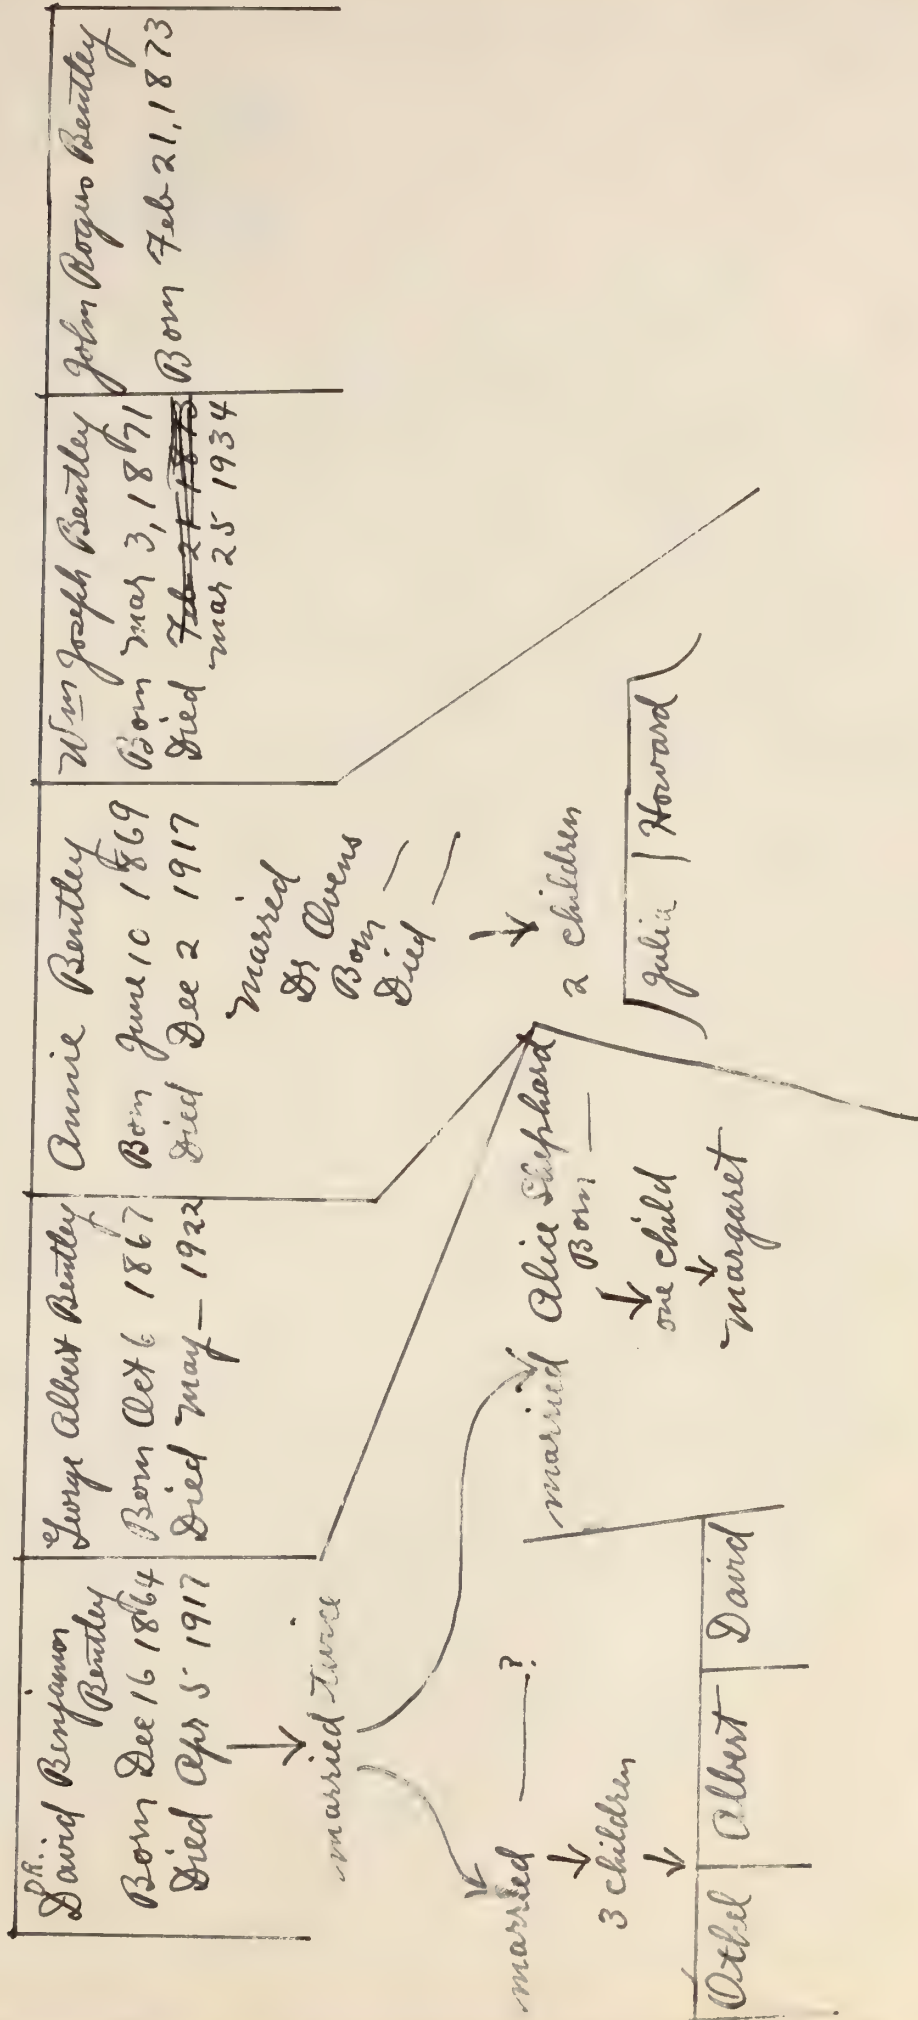 DR.
David Benjamin
Bentley
Born Dec 16 1864
Died Apr 5 1917
married twice
married ——?
3 children
Othel | Albert | David
married Alice Shephard
Born —
one child
Margaret
George Albert Bentley
Born Oct 6 1867
Died May — 1922
Annie Bentley
Born June 10 1869
Died Dec 2 1917
married
Dr Ovens
Born —
Died —
2 children
Julia | Howard
Wm Joseph Bentley
Born Mar 3, 1871
Died Feb 21 1873
Mar 25 1934
John Rogers Bentley
Born Feb 21, 1873